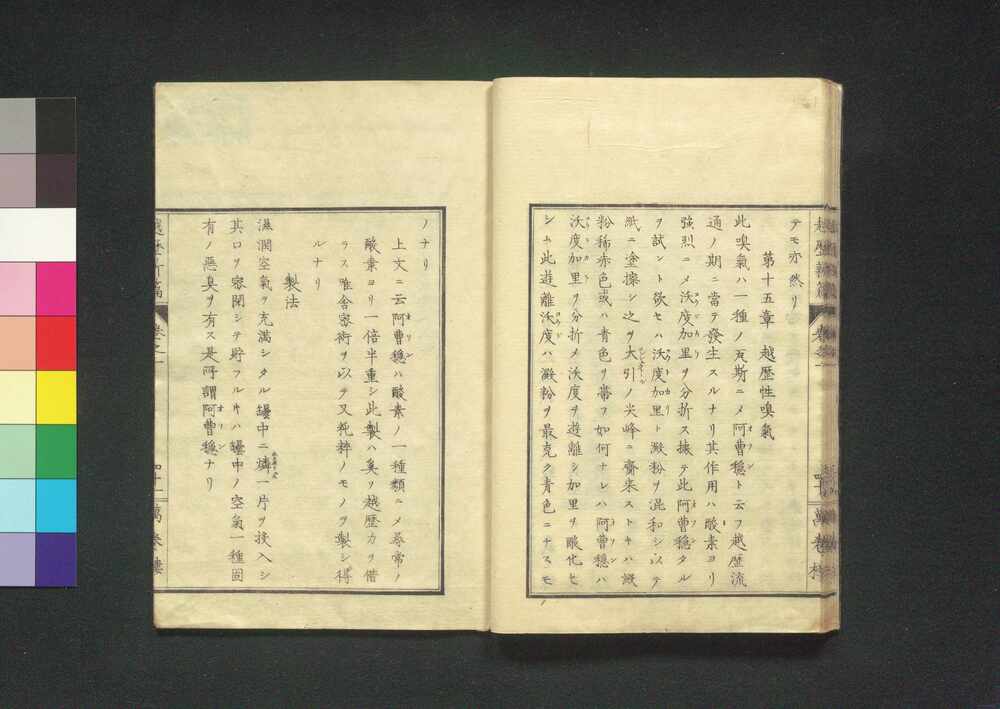 テモ亦然リ
第十五章　越歴性嗅氣
此嗅氣ハ一種ノ瓦斯ニメ阿曹穏ト云フ越歴流
通ノ期ニ當テ發生スルナリ其作用ハ酸素ヨリ
強烈ニメ沃度加里ヲ分折ス據テ此阿曹穏タル
ヲ試ント欲セハ沃度加里ト澱粉ヲ混和シ以テ
紙ニ塗擦シ之ヲ大引ノ尖峰ニ齎来ストキハ澱
粉稀赤色或ハ青色ヲ帯フ如何ナレハ阿曹穏ハ
沃度加里ヲ分折メ沃度ヲ遊離シ加里ヲ酸化セ
シム此遊離沃度ハ澱粉ヲ最克ク青色ニナスモ
ノナリ
上文ニ云阿曹穏ハ酸素ノ一種類ニメ尋常ノ
酸素ヨリ一倍半重シ此製ハ奚ソ越歴力ヲ借
ラス唯舎密術ヲ以テ又純粋ノモノヲ製シ得
ルナリ
製法
濕潤空氣ヲ充滿シタル罎中ニ燐一片ヲ投入シ
其口ヲ密閉シテ貯フルキハ罎中ノ空氣一種固
有ノ悪臭ヲ有ス是所謂阿曹穏ナリ
越歴新篇
巻之一
四十一
萬巻樓